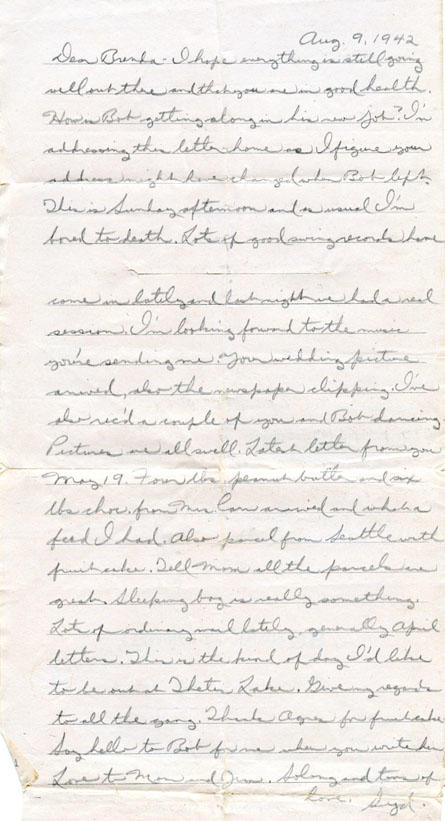 Aug. 9, 1942
Dear Brenda - I hope everything is still going
well out there and that you are in good health.
How is Bob getting along in his new job? I'm
addressing this letter home as I figure your
address might have changed when Bob left.
This is Sunday afternoon and as usual I'm
bored to death. Lots of good swing records have
come in lately and last night we had a real
session. I'm looking foward to the music
you're sending me. Your wedding picture
arrived, also the newspaper clipping. I've
also rec'd a couple of you and Bob dancing
Pictures are all swell. Latest letter from you
May 19. Four lbs. peanut butter and six
lbs choc. from Mrs. arrived and what a
feed I had. Also parcel from Seattle with
fruitcake. Tell Mom all the parcels are
great. Sleeping bag is really something.
Lots of ordinary mail lately, generally April
letters. This is the kind of day I'd like
to be out at Lake. Give my regards
to all the gang. Thank Agnes for fruitcake
Say hello to Bob for me when you write him
Love to Mom and Jim. So long and tons of
love, Syd.